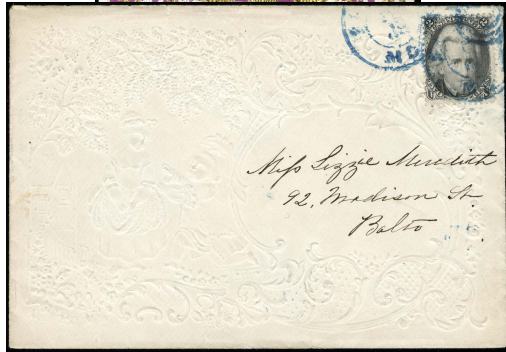 MD
Miss Lizzie Meredith
92, Madison St.
Balto